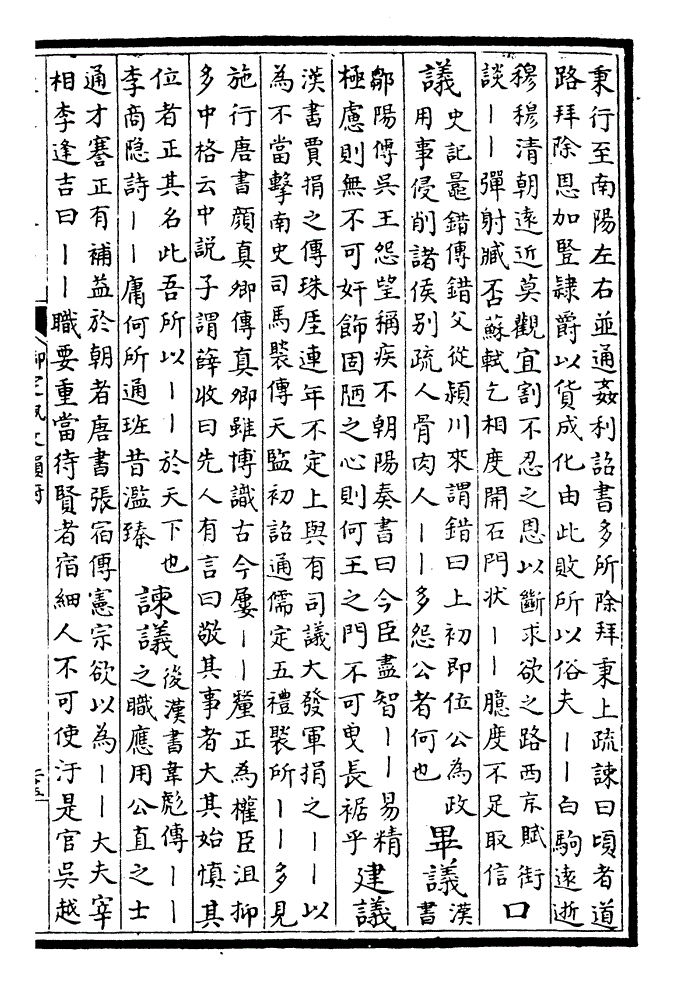 秉行至南陽左右並通姦利詔書多所除拜秉上疏諫曰頃者道
路拜除恩加豎隷爵以貨成化由此敗所以俗夫——白駒遠逝
穆穆清朝遠近莫觀宜割不忍之恩以斷求欲之路西京賦街
談——彈射臧否蘇軾乞相度開石門狀——臆度不足取信
口
議
史記鼂錯傳錯父從潁川來謂錯曰上初即位公為政
用事侵削諸侯别疏人骨肉人——多怨公者何也
畢議
漢
書
鄒陽傳吳王怨望稱疾不朝陽奏書曰今臣盡智——易精
極慮則無不可奸飾固陋之心則何王之門不可曵長裾乎
建議
漢書賈捐之傳珠厓連年不定上與有司議大發軍捐之——以
為不當擊南史司馬褧傳天監初詔通儒定五禮褧所——多見
施行唐書顔真卿傳真卿雖博識古今屢——釐正為權臣沮抑
多中格云中說子謂薛收曰先人有言曰敬其事者大其始慎其
位者正其名此吾所以——於天下也
李商隐詩——庸何所通班昔濫臻
諫議
後漢書韋彪傳——
之職應用公直之士
通才謇正有補益於朝者唐書張宿傳憲宗欲以為——大夫宰
相李逢吉曰——職要重當待賢者宿細人不可使汙是官吳越